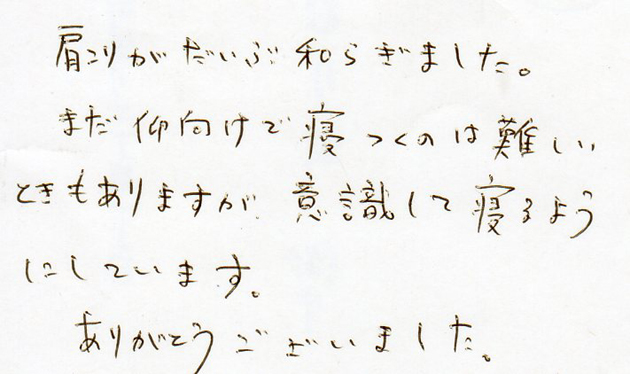 肩こりがだいぶ和らぎました。
まだ仰向けで寝つくのは難しい
ときもありますが、意識して寝るよう
にしています。
ありがとうございました。